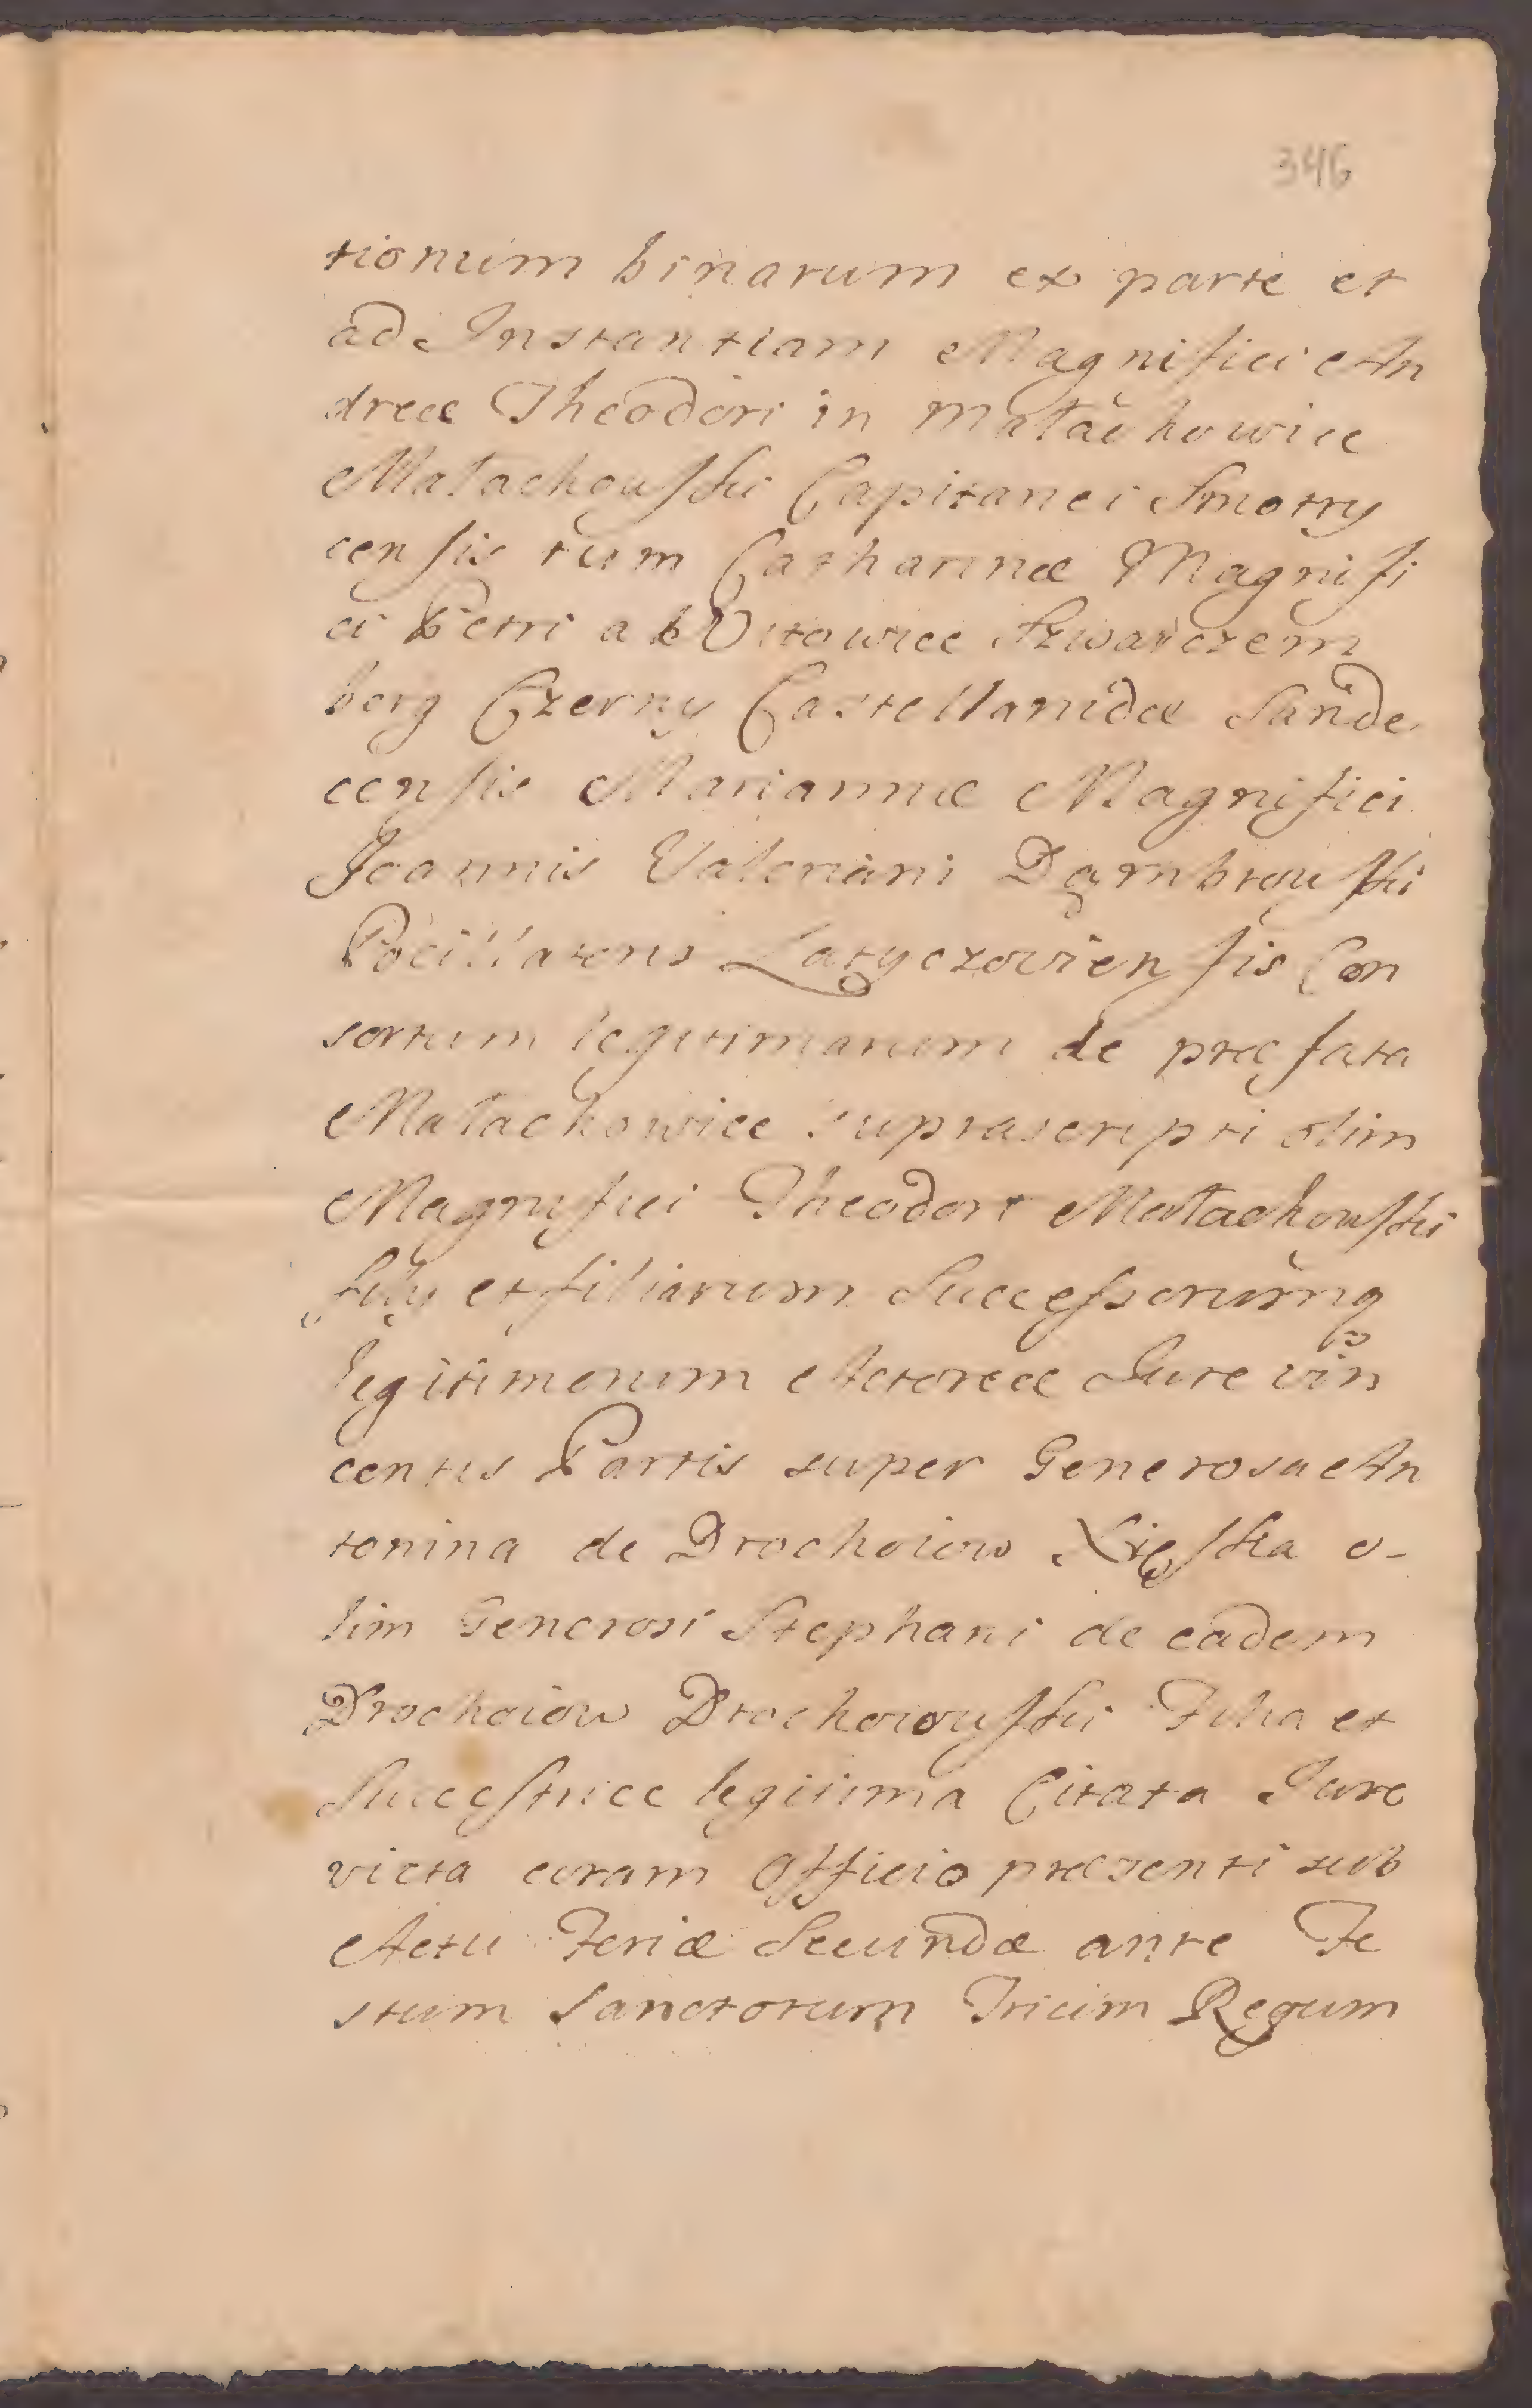 346
tionum binarum ex parte et
ad Instantiam Magnifici An
dreæ Theodori in Małachowice
Małachowski Capitanei Smotry
censis tum Catharinæ Magnifi
ci Petri a Witowice Szwarczem
berg Czerny Castellanidæ Sande
censis Mariannæ Magnifici
Joannis Valeriani Dąmbrowski
Pocillatoris Latyczoviensis Con
sortum legitimarum de præfata
Małachowice suprascripti olim
Magnifici Theodori Małachowski
filij et filiarum Successorumq
legitimorum Actoreæ Jure vin
centis Partis super Generosa An
tonina de Drochoiow o-
lim Generosi Stephani de eadem
Drochoiow Drochoiowski Filia et
Successrice legitima Citata Jure
victa coram Officio præsenti sub
Actu Feriæ Secundæ ante Fe
stum Sanctorum Trium Regum